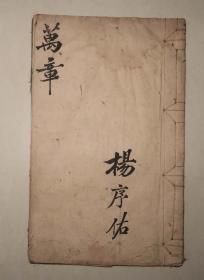 萬章
楊序佑